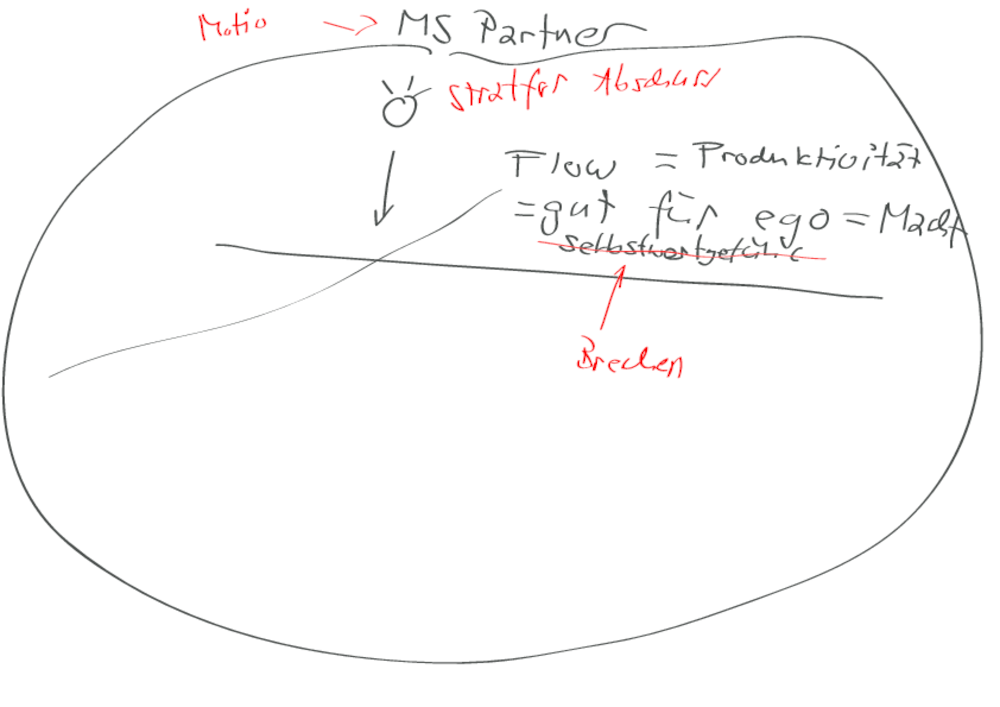 Motio → MS Partner
stratfor Abschuss
Flow = Produktivität
= gut für ego = Macht
Selbstwertgefühl
Brechen